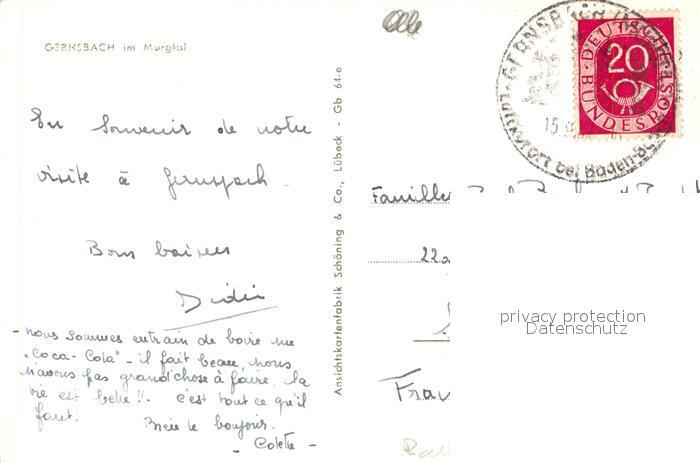 GERNSBACH im Murgtal
En souvenir de notre
visite à Gernspach.
Bons baisers
Didi
- nous sommes entrain de boire un
"Coca-Cola" - il fait beau, nous
n'avons pas grand'chose à faire, la
vie est belle!!. c'est tout ce qu'il
faut!
Bien le bonjour.
- Colette -
Ansichtskartenfabrik Schöning & Co., Lübeck - Gb 64-e
GERNSBACH
15
Luftkurort bei Baden-Baden
DEUTSCHE BUNDESPOST
20
Famille
22
Fra
privacy protection
Datenschutz